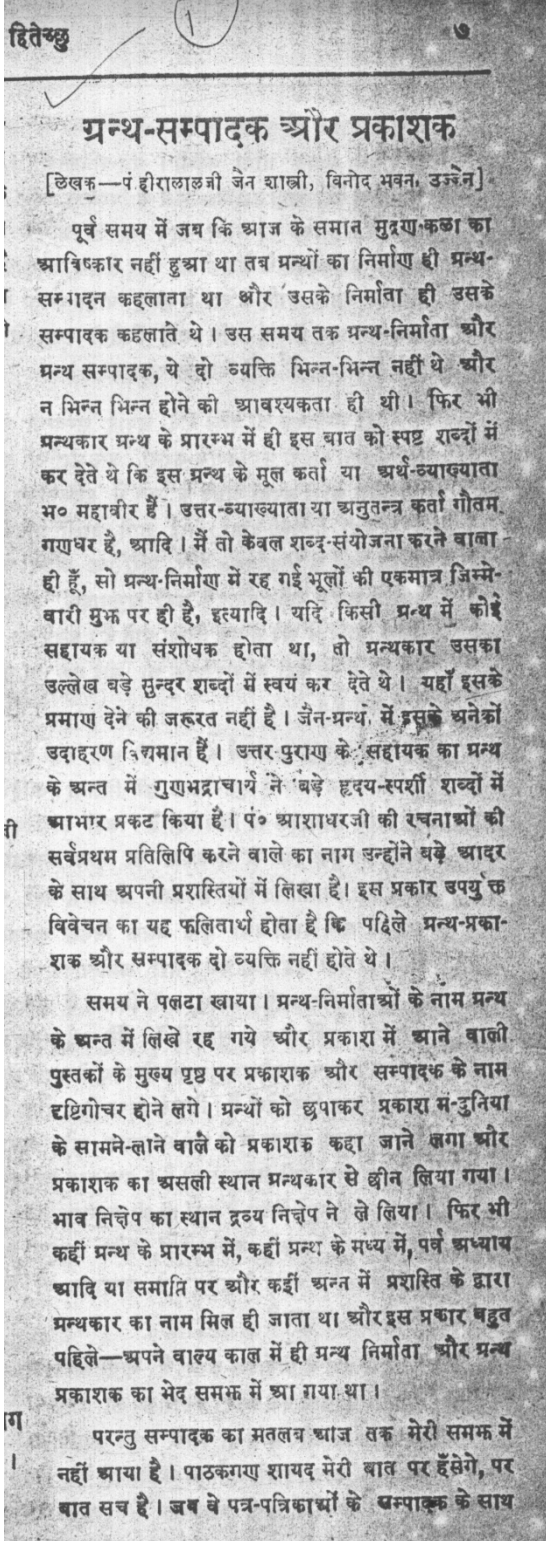 1
हितेच्छु ७
ग्रन्थ-सम्पादक और प्रकाशक
[लेखक—पं हीरालालजी जैन शास्त्री, विनोद भवन, उज्जैन]
पूर्व समय में जब कि आज के समान मुद्रण-कला का
आविष्कार नहीं हुआ था तब ग्रन्थों का निर्माण ही ग्रन्थ-
सम्पादन कहलाता था और उसके निर्माता ही उसके
सम्पादक कहलाते थे । उस समय तक ग्रन्थ-निर्माता और
ग्रन्थ सम्पादक, ये दो व्यक्ति भिन्न-भिन्न नहीं थे और
न भिन्न भिन्न होने की आवश्यकता ही थी । फिर भी
ग्रन्थकार ग्रन्थ के प्रारम्भ में ही इस बात को स्पष्ट शब्दों में
कर देते थे कि इस ग्रन्थ के मूल कर्ता या अर्थ-व्याख्याता
भ० महावीर हैं । उत्तर-व्याख्याता या अनुतन्त्र कर्ता गौतम
गणधर है, आदि । मैं तो केवल शब्द-संयोजना करने वाला
ही हूँ, सो ग्रन्थ-निर्माण में रह गई भूलों की एकमात्र जिम्मे-
वारी मुझ पर ही है, इत्यादि । यदि किसी ग्रन्थ में कोई
सहायक या संशोधक होता था, तो ग्रन्थकार उसका
उल्लेख बड़े सुन्दर शब्दों में स्वयं कर देते थे । यहाँ इसके
प्रमाण देने की जरूरत नहीं है । जैन-ग्रन्थ में इसके अनेकों
उदाहरण विद्यमान हैं । उत्तर-पुराण के सहायक का ग्रन्थ
के अन्त में गुणभद्राचार्य ने बड़े हृदय-स्पर्शी शब्दों में
आभार प्रकट किया है । पं० आशाधरजी की रचनाओं की
सर्वप्रथम प्रतिलिपि करने वाले का नाग उन्होंने बड़े आदर
के साथ अपनी प्रशस्तियों में लिखा है । इस प्रकार उपर्युक्त
विवेचन का यह फलितार्थ होता है कि पहिले ग्रन्थ-प्रका-
शक और सम्पादक दो व्यक्ति नहीं होते थे ।
समय ने पलटा खाया । ग्रन्थ-निर्माताओं के नाम ग्रन्थ
के अन्त में लिखे रह गये और प्रकाश में आने वाली
पुस्तकों के मुख्य पृष्ठ पर प्रकाशक और सम्पादक के नाम
दृष्टिगोचर होने लगे । ग्रन्थों को छपाकर प्रकाश म-दुनिया
के सामने-लाने वाले को प्रकाशक कहा जाने लगा और
प्रकाशक का असली स्थान ग्रन्थकार से छीन लिया गया ।
भाव निक्षेप का स्थान द्रव्य निक्षेप ने ले लिया । फिर भी
कहीं ग्रन्थ के प्रारम्भ में, कहीं ग्रन्थ के मध्य में, पर्व अध्याय
आदि या समाप्ति पर और कहीं अन्त में प्रशस्ति के द्वारा
ग्रन्थकार का नाम मिल ही जाता था और इस प्रकार बहुत
पहिले—अपने वाल्य काल में ही ग्रन्थ निर्माता और ग्रन्थ
प्रकाशक का भेद समझ में आ गया था ।
परन्तु सम्पादक का मतलब आज तक मेरी समझ में
नहीं आया है । पाठकगण शायद मेरी बात पर हँसेगे, पर
बात सच है । जब वे पत्र-पत्रिकाओं के सम्पादक के साथ